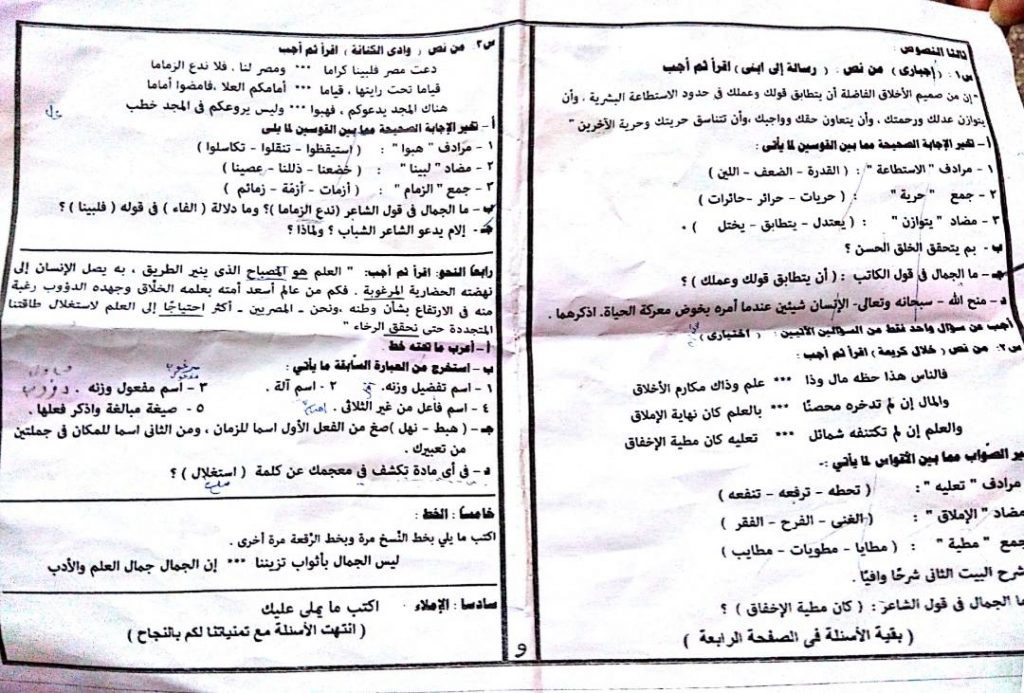 ثالثا النصوص :
س١ : (إجبارى) من نص : ( رسالة إلى ابنى) اقرأ ثم أجب
" إن من صميم الأخلاق الفاضلة أن يتطابق قولك وعملك فى حدود الاستطاعة البشرية ، وأن
يتوازن عدلك ورحمتك ، وأن يتعاون حقك وواجبك ،وأن تتناسق حريتك وحرية الآخرين "
أ – تخير الإجابة الصحيحة مما بين القوسين لما يأتى :
١ – مرادف "الاستطاعة " : ( القدرة – الضعف – اللين )
٢ – جمع " حرية " : ( حريات – حرائر – حائرات )
٣ – مضاد " يتوازن " : ( يعتدل – يتطابق – يختل ) ٠
ب – بم يتحقق الخلق الحسن ؟
جـ – ما الجمال فى قول الكاتب : ( أن يتطابق قولك وعملك ) ؟
د – منح الله – سبحانه وتعالى- الإنسان شيئين عندما أمره بخوض معركة الحياة. اذكرهما .
أجب عن سؤال واحد فقط من السؤالين الآتيين : ( اختيارى )
س٢: من نص ( خلال كريمة ) اقرأ ثم أجب :
فالناس هذا حظه مال وذا *** علم وذاك مكارم الأخلاق
والمال إن لم تدخره محصنًا *** بالعلم كان نهاية الإملاق
والعلم إن لم تكتنفه شمائل *** تعليه كان مطية الإخفاق
ير الصّواب مما بين الأقواس لما يأتي :-
مرادف " تعليه " : ( تحطه – ترفعه – تنفعه )
مضاد " الإملاق " : ( الغنى – الفرح – الفقر )
جمع " مطية " : ( مطايا – مطويات – مطايب )
شرح البيت الثانى شرحًا وافيًا .
ما الجمال فى قول الشاعر : ( كان مطية الإخفاق ) ؟
( بقية الأسئلة فى الصفحة الرابعة )
س٣: من نص ( وادى الكنانة ) اقرأ ثم أجب
دعت مصر فلبينا كراما *** ومصر لنا ، فلا ندع الزماما
قياما تحت رايتها ، قياما *** أمامكم العلا ،فامضوا أماما
هناك المجد يدعوكم ، فهبوا *** وليس يروعكم فى المجد خطب
أ – تخير الإجابة الصحيحة مما بين القوسين لما يلى
١ – مرادف " هبوا " : ( استيقظوا – تنقلوا – تكاسلوا )
٢ – مضاد" لبينا " : ( خضعنا – ذللنا – عصينا )
٣ – جمع " الزمام " : ( أزمات – أزمّة – زمائم )
ب – ما الجمال فى قول الشاعر (ندع الزماما )؟ وما دلالة ( الفاء ) فى قوله ( فلبينا ) ؟
جـ – إلام يدعو الشاعر الشباب ؟ ولماذا ؟
رابعًا النحو: اقرأ ثم أجب: " العلم هو المصباح الذى ينير الطريق ، به يصل الإنسان إلى
نهضته الحضارية المرغوبة . فكم من عالم أسعد أمته بعلمه الخلّاق وجهده الدؤوب رغبة
منه فى الارتفاع بشأن وطنه ،ونحن ـ المصريين ـ أكثر احتياجًا إلى العلم لاستغلال طاقتنا
المتجددة حتى نحقق الرخاء "
أ – أعرب ما تحته خط .
ب – استخرج من العبارة السّابقة ما يأتي :
١ – اسم تفضيل وزنه. ٢ – اسم آلة . ٣ – اسم مفعول وزنه .
٤ – اسم فاعل من غير الثلاثى . ٥ – صيغة مبالغة واذكر فعلها.
جـ – ( هبط – نهل )صغ من الفعل الأول اسما للزمان ، ومن الثانى اسما للمكان فى جملتين
من تعبيرك .
د – فى أى مادة تكشف فى معجمك عن كلمة ( استغلال ) ؟
خامسًا : الخط :
اكتب ما يلي بخط النّسخ مرة وبخط الرّقعة مرة أخرى .
ليس الجمال بأثواب تزيننا *** إن الجمال جمال العلم والأدب
سادسا : الإملاء ٠ اكتب ما يملى عليك
( انتهت الأسئلة مع تمنياتنا لكم بالنجاح )